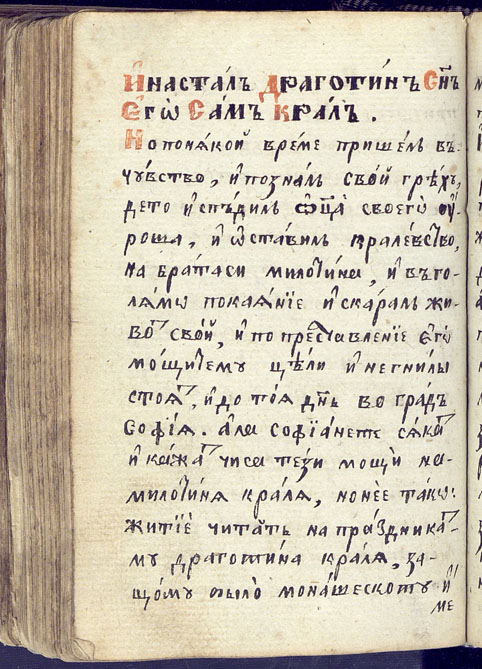 И҆насталъ Драготинъ Сн҃ъ
Е҆гѡ Самъ Кралъ .
Но понѧкой време пришелъ въ
чꙋ́вство, и҆позналъ свой грѣ́хъ,
дето и҆спъдилъ ѿц҃а своегѡ ᲂу҆
роша, и҆ ѡ҆ставилъ кралевство,
на братаси милꙋтина, и҆ въго-
лямо покаѧнїе и҆скаралъ жи-
вотъ свой, и҆по преставленїе е҆гѡ
мощитему цѣли и҆ негнилы
стоѧтъ, и҆до тоѧ дн҃ь во градъ
Софїѧ. а҆ла софїанете сѧкатъ
и҆ кажатъ чиса тези мощи на
милꙋтина кралѧ, но не е҆ тако:
житїе читатъ на праздника
му драготина кралѧ, за-
що҆му было монашеското и҆
ме